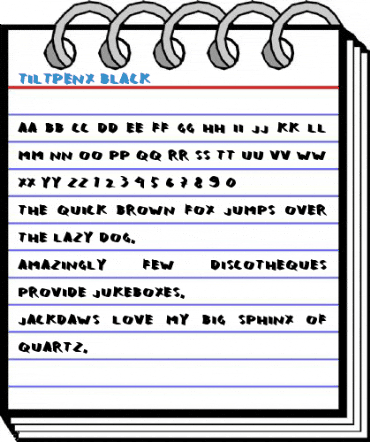 TILTPENX BLACK
AA BB CC DD EE FF GG HH II JJ KK LL
MM NN OO PP QQ RR SS TT UU VV WW
XX YY ZZ 1 2 3 4 5 6 7 8 9 0
THE QUICK BROWN FOX JUMPS OVER
THE LAZY DOG.
AMAZINGLY FEW DISCOTHEQUES
PROVIDE JUKEBOXES.
JACKDAWS LOVE MY BIG SPHINX OF
QUARTZ.